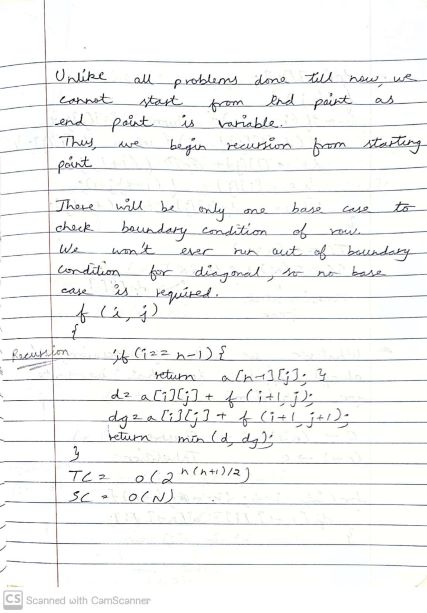 Unlike all problems done till now, we
cannot start from End point as
end point is variable.
Thus, we begin recursion from starting
point
There will be only one base case to
check boundary condition of row.
We won't ever run out of boundary
condition for diagonal, so no base
case is required.
f (i, j)
{
Recursion if (i == n-1) {
return a[n-1][j]; }
d= a[i][j] + f (i+1, j);
dg= a[i][j] + f (i+1, j+1);
return min (d, dg);
}
TC = O(2^n(n+1)/2)
SC = O(N)
CS Scanned with CamScanner